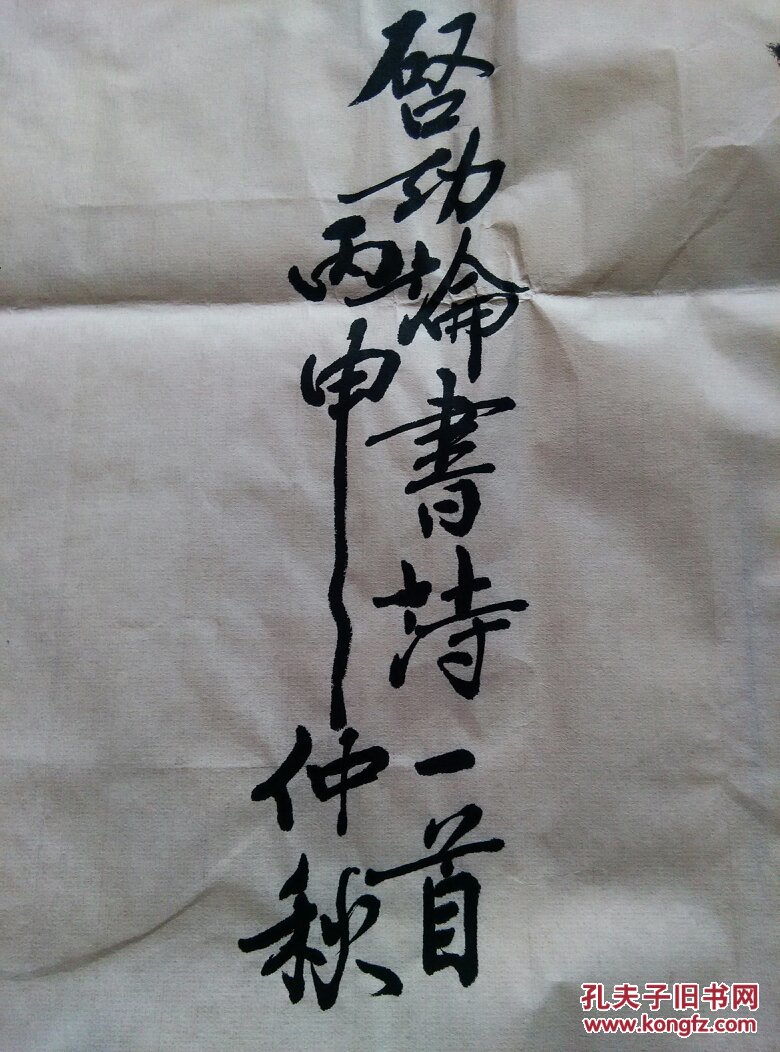 啓功論書詩一首
丙申仲秋
孔夫子旧书网
www.kongfz.com